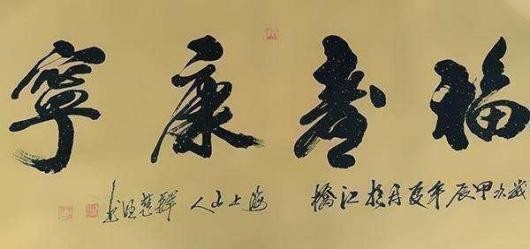 福壽康寧
歲次甲辰年夏月於江橋 海上山人